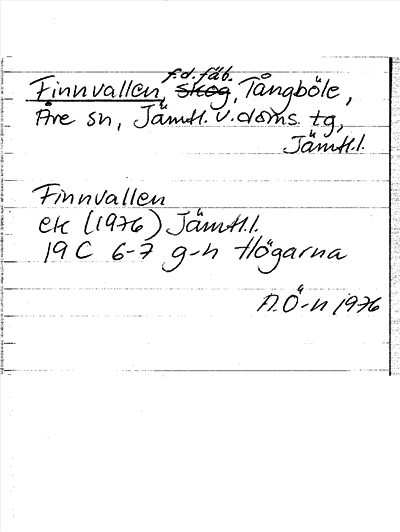 f.d. fäb.
Finnvallen, Skog, Tångböle,
Åre sn, Jämtl. v. doms. tg,
Jämtl.l.
Finnvallen
ek (1976) Jämtl.l.
19 C 6-7 g-h Högarna
A.Ö-n 1976